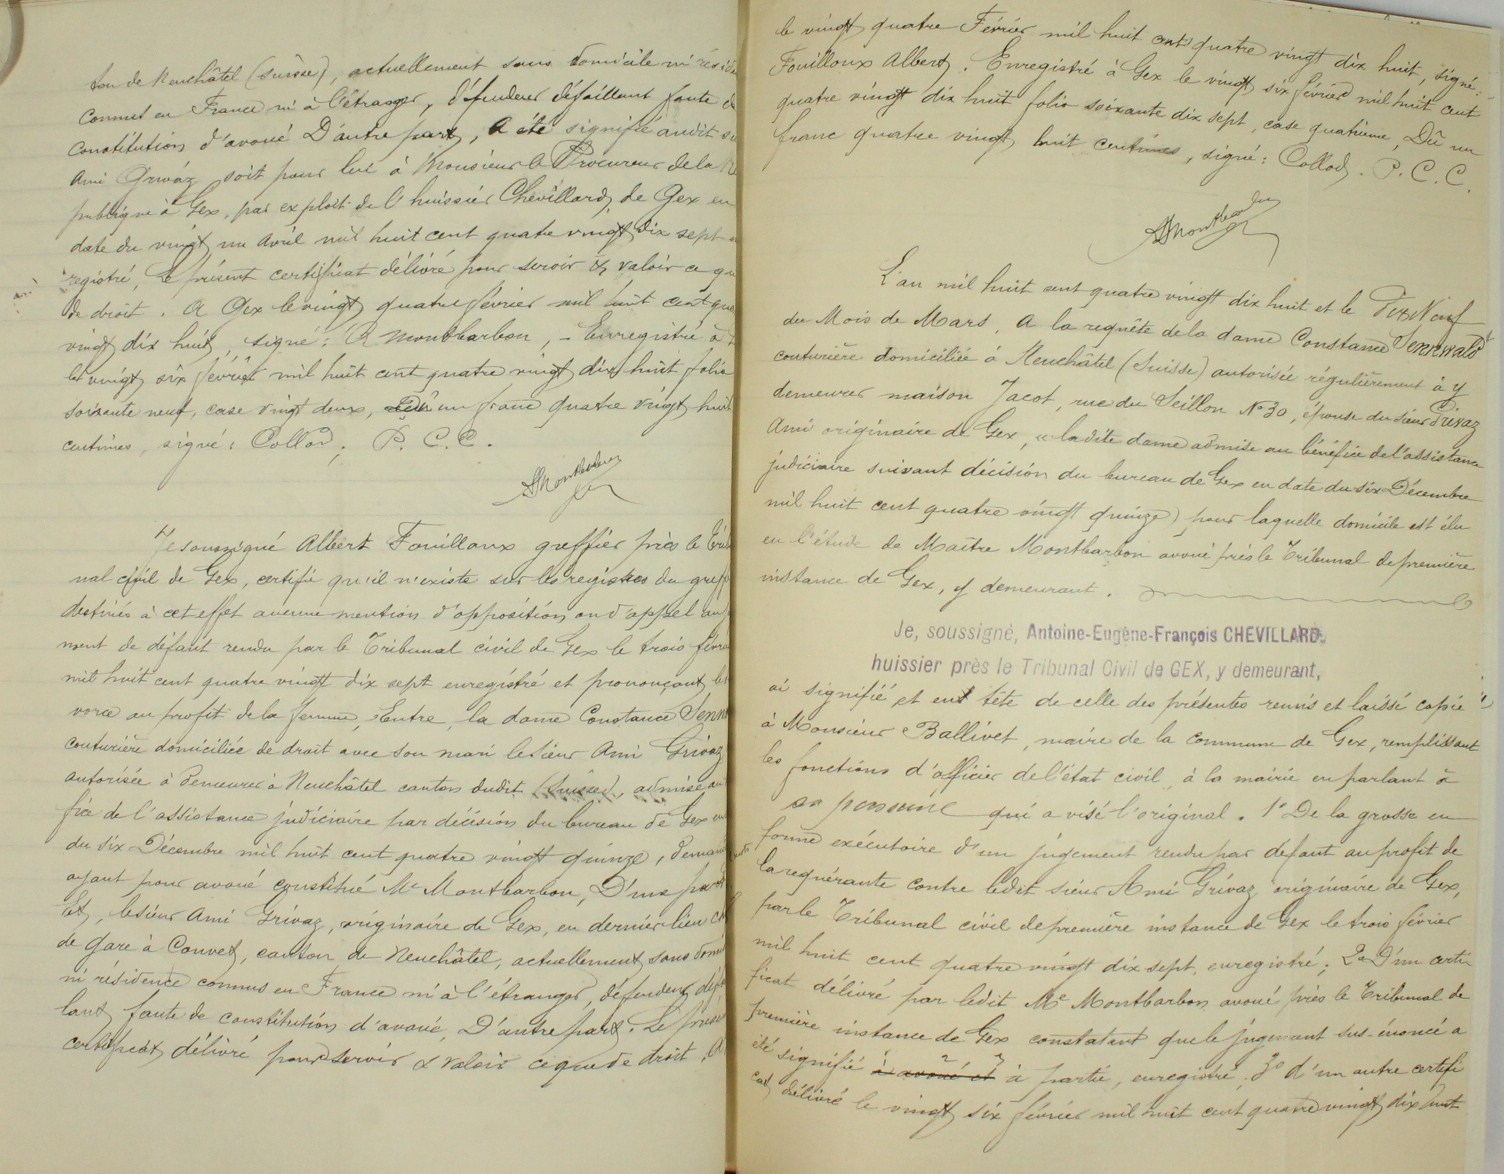 ton de Neuchâtel (Suisse), actuellement sans domicile ni résid
connus en France ni à l'étranger, défendeur défaillant faute de
constitution d'avoué D'autre part, A été signifié audit s
Ami Grivaz soit pour lui à Monsieur le Procureur de la Ré
publique à Gex, par exploit de l'huissier Chevillard, de Gex en
date du vingt un Avril mil huit cent quatre vingt dix sept
registré, Le présent certificat délivré pour servir & valoir ce qu
de droit. A Gex le vingt quatre février mil huit cent qua
vingt dix huit, signé: A Montbarbon, - Enregistré à
le vingt six février mil huit cent quatre vingt dix huit folio
soixante neuf, case vingt deux, un franc quatre vingt huit
centimes, signé: Collod, P. C. C.
AMontbarbon
Je soussigné Albert Fouilloux greffier près le Tribu
nal civil de Gex, certifie qu'il n'existe sur les registres du greff
destinés à cet effet aucune mention d'opposition ou d'appel au
ment de défaut rendu par le Tribunal civil de Gex le trois févri
mil huit cent quatre vingt dix sept enregistré et prononçant le
vorce au profit de la femme, Entre, la dame Constance Jenn
couturière domiciliée de droit avec son mari le sieur Ami Grivaz
autorisée à demeurer à Neuchâtel canton dudit (Suisse), admise au
fice de l'assistance judiciaire par décision du bureau de Gex en
du six Décembre mil huit cent quatre vingt quinze, Deman
ayant pour avoué constitué Me Montbarbon, D'une part
Et, le sieur Ami Grivaz, originaire de Gex, en dernier lieu
de gare à Couvet, canton de Neuchâtel, actuellement sans domi
ni résidence connus en France ni à l'étranger, défendeur défa
lant faute de constitution d'avoué, D'autre part. Le prése
certificat délivré pour servir & valoir ce que de droit. A
le vingt quatre Février mil huit cent quatre vingt dix huit, signé:
Fouilloux Albert. Enregistré à Gex le vingt six février mil huit cent
quatre vingt dix huit folio soixante dix sept, case quatrième, Dû un
franc quatre vingt huit centimes, signé: Collod. P. C. C.
AMontbarbon
L'an mil huit cent quatre vingt dix huit et le Dix Neuf
du Mois de Mars, A la requête de la dame Constance Jennwald
couturière domiciliée à Neuchâtel (Suisse) autorisée régulièrement à y
demeurer maison Jacot, rue du Seillon No 30, épouse du sieur Grivaz
Ami originaire de Gex, "ladite dame admise au bénéfice de l'assistance
judiciaire suivant décision du bureau de Gex en date du six Décembre
mil huit cent quatre vingt quinze) pour laquelle domicile est élu
en l'étude de Maître Montbarbon avoué près le Tribunal de première
instance de Gex, y demeurant.
Je, soussigné, Antoine-Eugène-François CHEVILLARD,
huissier près le Tribunal Civil de GEX, y demeurant,
ai signifié et en tête de celle des présentes remis et laissé copie
à Monsieur Ballivet, maire de la commune de Gex, remplissant
les fonctions d'officier de l'état civil, à la mairie en parlant à
sa personne qui a visé l'original. 1° De la grosse en
forme exécutoire d'un jugement rendu par défaut au profit de
la requérante contre ledit sieur Ami Grivaz, originaire de Gex,
par le Tribunal civil de première instance de Gex le trois février
mil huit cent quatre vingt dix sept, enregistré; 2° D'un certi
ficat délivré par ledit Me Montbarbon avoué près le Tribunal de
première instance de Gex constatant que le jugement sus-énoncé a
été signifié à avoué et à partie, enregistré, 3° d'un autre certifi
cat délivré le vingt six février mil huit cent quatre vingt dix huit